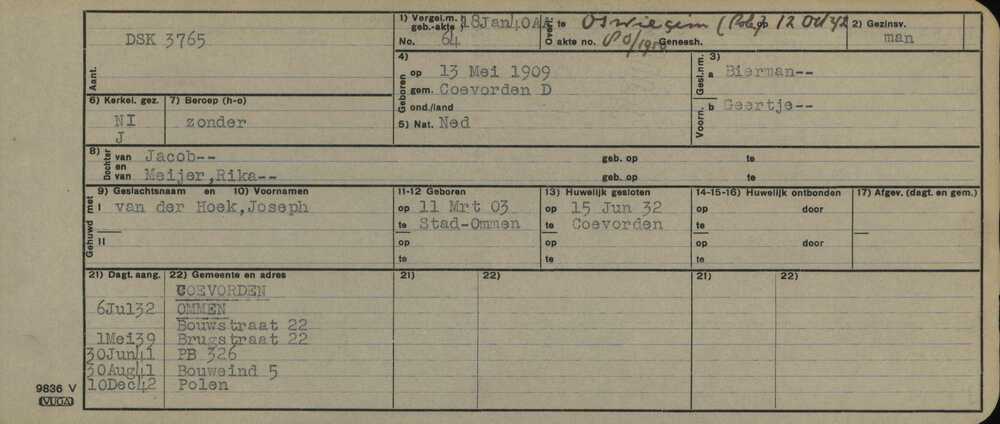 DSK 3765
Aant.
1) Vergel.m. geb.-akte 18Jan40AA
No. 64
Overl. te Oswiegem (Pole) op 12 Oct 42
akte no. Geneesh.
2) Gezinsv.
man
4) Geboren
op 13 Mei 1909
gem. Coevorden D
ond./land
5) Nat. Ned
3)
Gesl.nm. a Bierman--
Voorn. b Geertje--
6) Kerkel. gez.
NI
J
7) Beroep (h-o)
zonder
8) Dochter van Jacob-- geb. op te
en van Meijer,Rika-- geb. op te
Gehuwd met
9) Geslachtsnaam en 10) Voornamen 11-12 Geboren 13) Huwelijk gesloten 14-15-16) Huwelijk ontbonden 17) Afgev. (dagt. en gem.)
I van der Hoek,Joseph op 11 Mrt 03 op 15 Jun 32 op door
te Stad-Ommen te Coevorden te
II op op op door
te te te
21) Dagt. aang. 22) Gemeente en adres 21) 22) 21) 22)
COEVORDEN
6Jul32 OMMEN
Bouwstraat 22
1Mei39 Brugstraat 22
30Jun41 PB 326
30Aug41 Bouweind 5
10Dec42 Polen
9836 V
VUGA